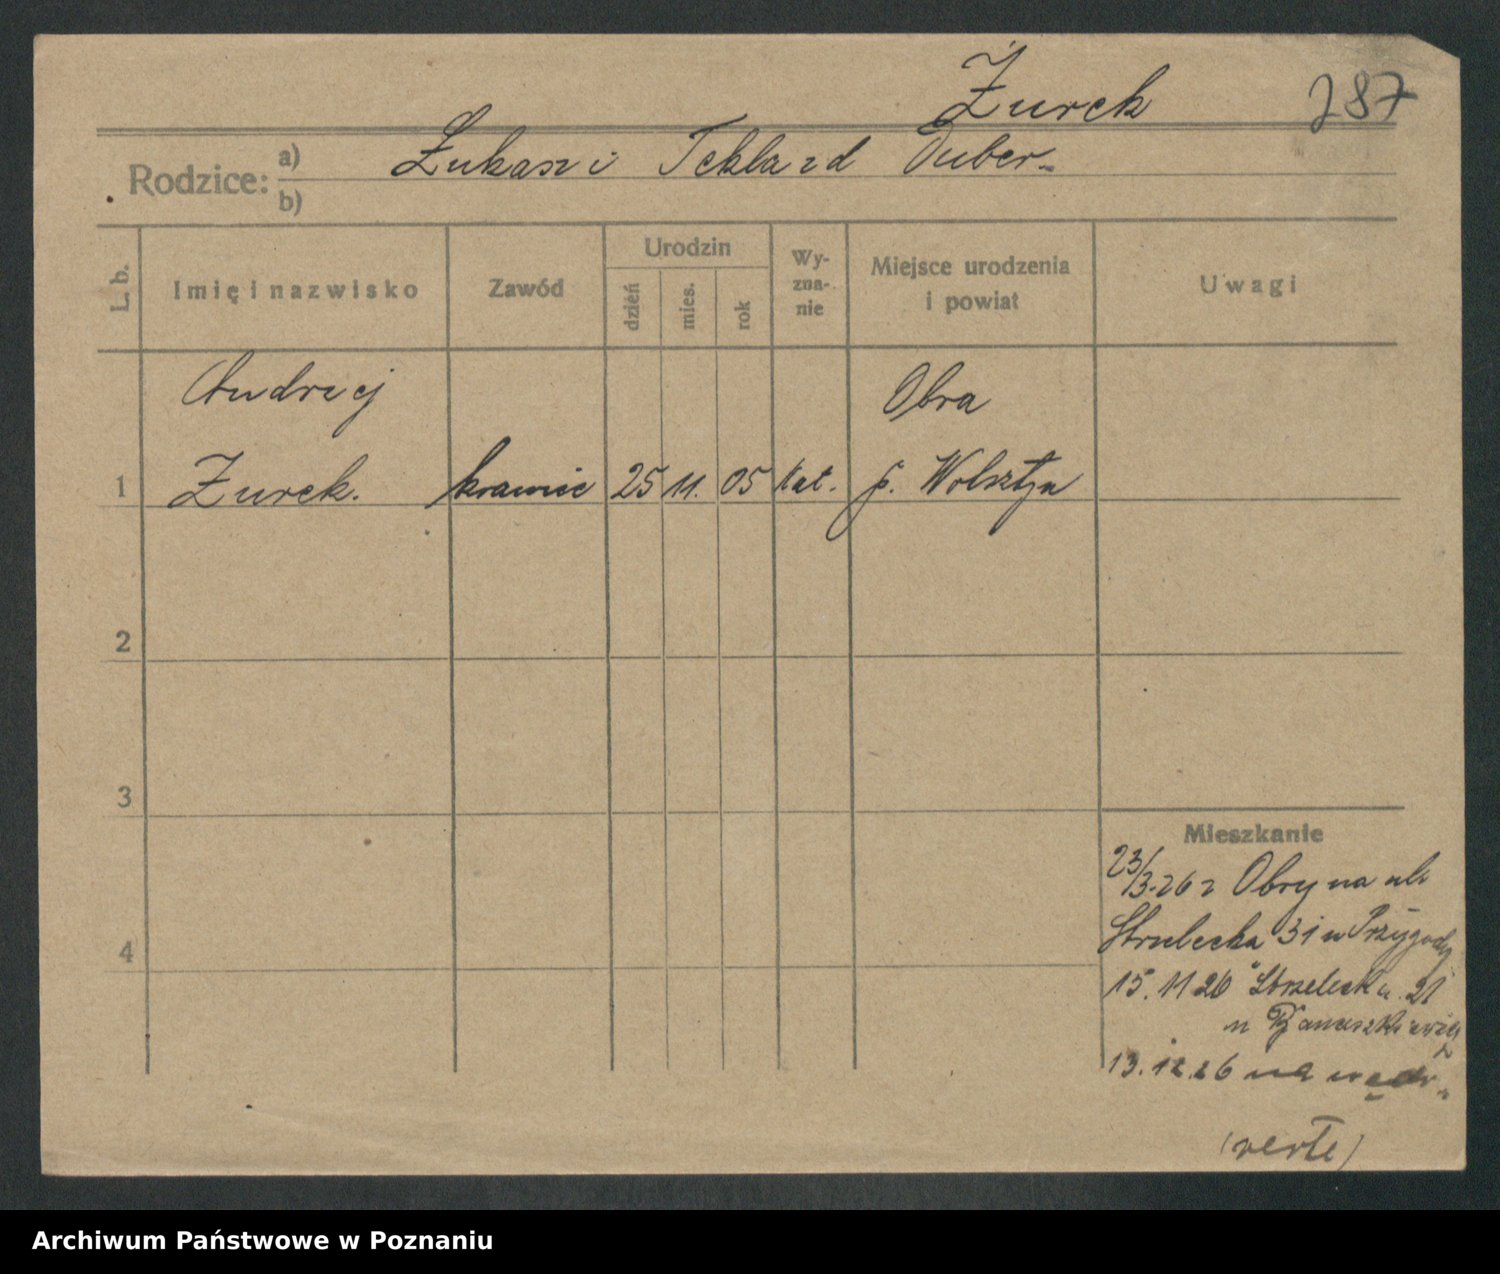 Żurek 287
Rodzice: a) Łukasz i Tekla zd Duber-
b)
L. b. Imię i nazwisko Zawód Urodzin dzień mies. rok Wy-zna-nie Miejsce urodzenia i powiat Uwagi
Andrzej Obra
1 Żurek. krawiec 25 11. 05 kat. p. Wolsztyn
2
3
Mieszkanie
23/3.26 z Obry na ul.
4 31 u Przygody
15.11 26 Strzelecka 21
u
13.12.26 na wędr.
(verte)
Archiwum Państwowe w Poznaniu